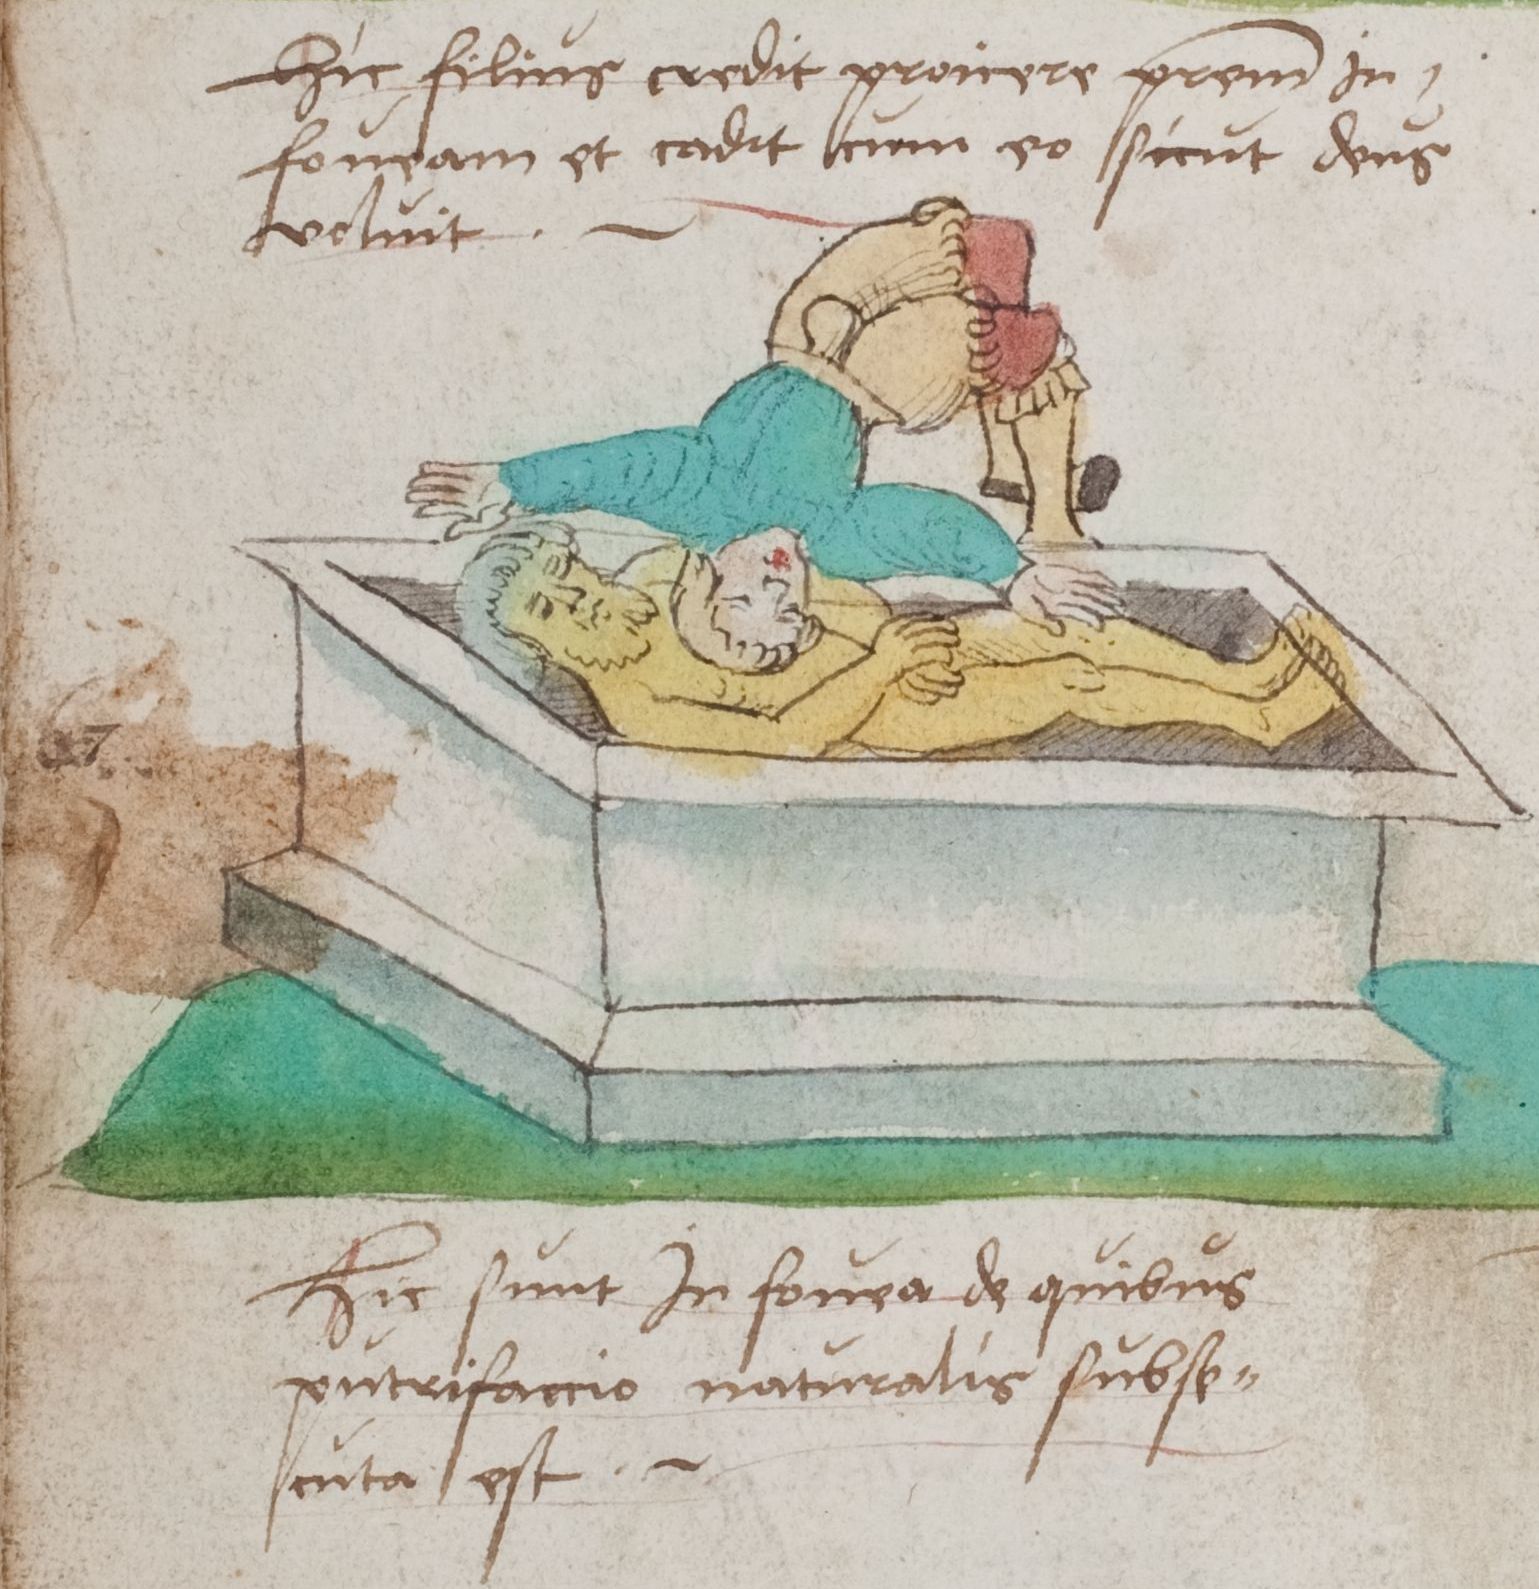 Hic filius credit proicere prem̄ In,
foueam et cadit cum eo sicut deus
voluit . ~
27
Hic sunt In fouea de quibus
putrifaccio naturalis subse„
cuta est . ~